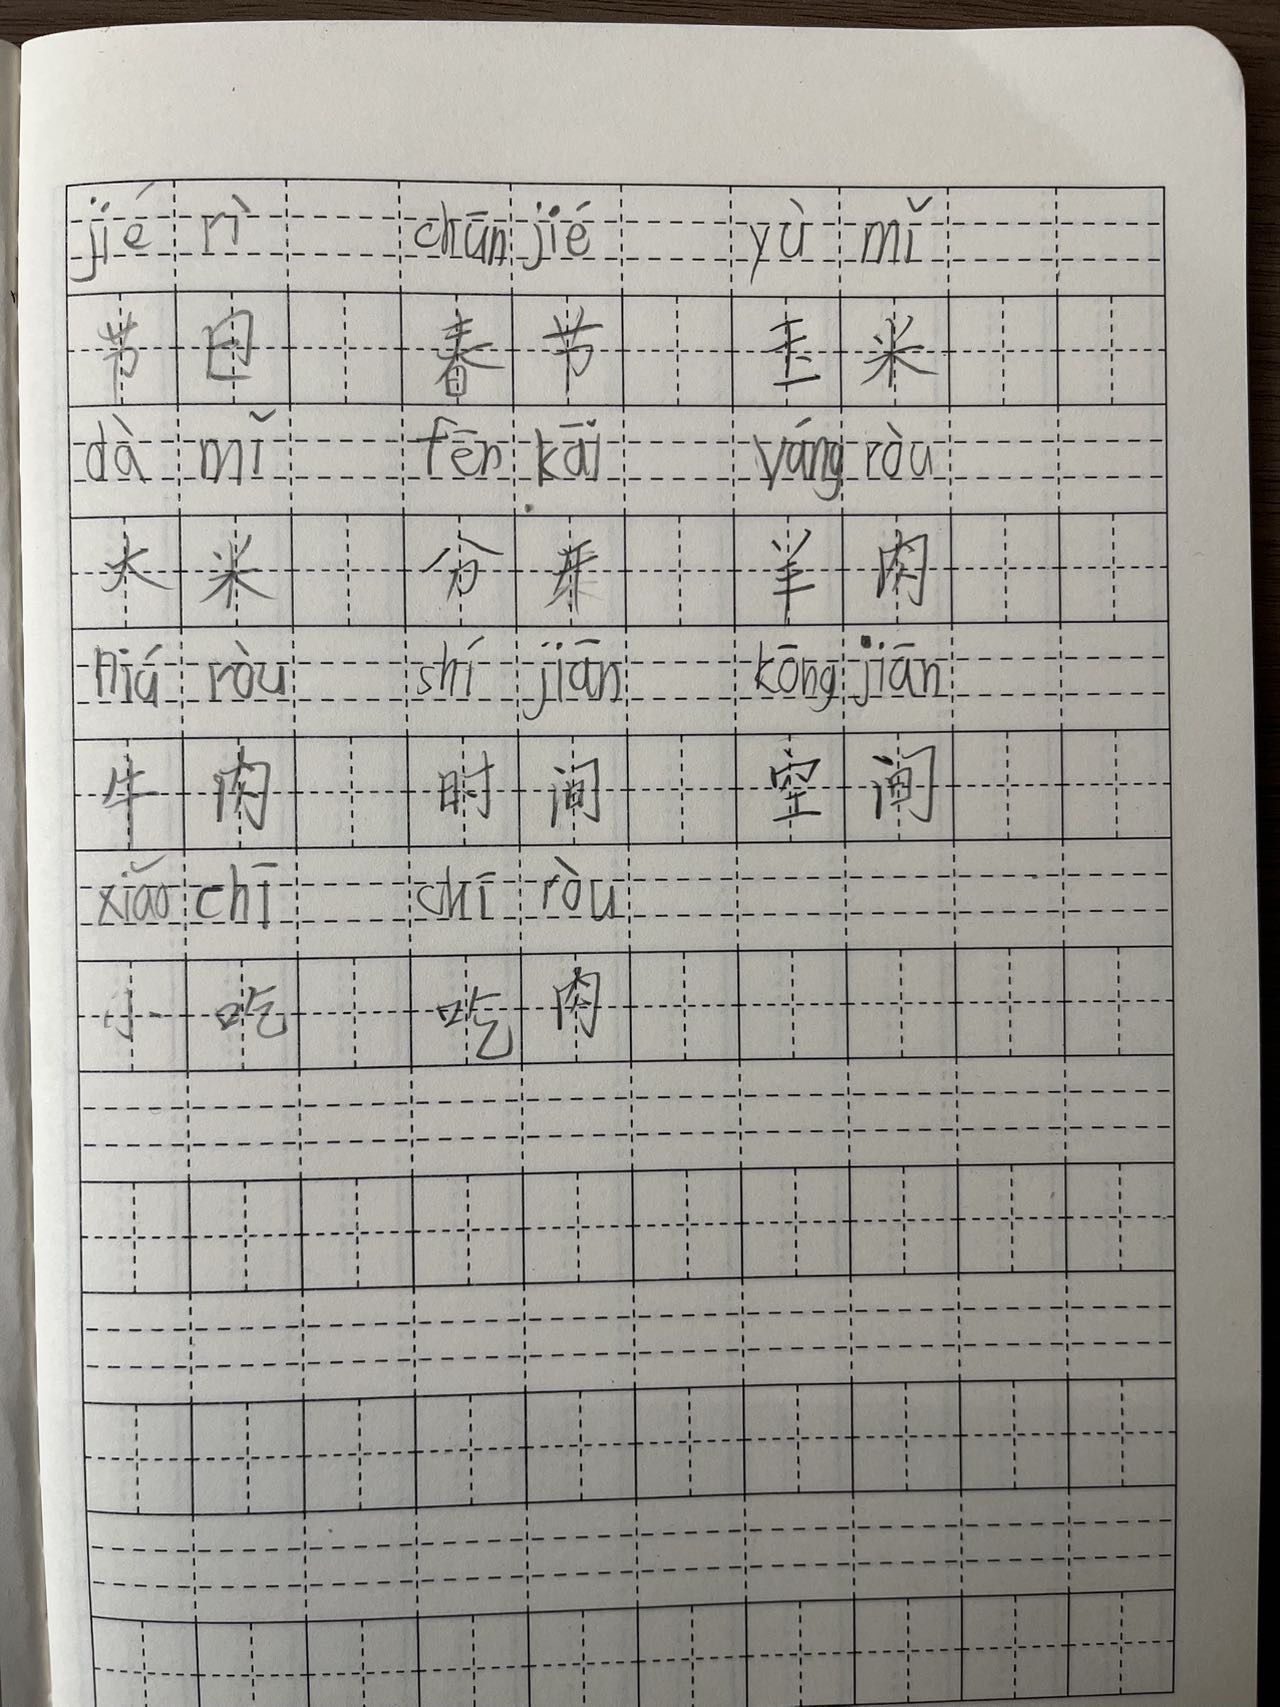 jié rì chūn jié yù mǐ
节日 春节 玉米
dà mǐ fēn kāi yáng ròu
大米 分开 羊肉
niú ròu shí jiān kōng jiān
牛肉 时间 空间
xiǎo chī chī ròu
小吃 吃肉